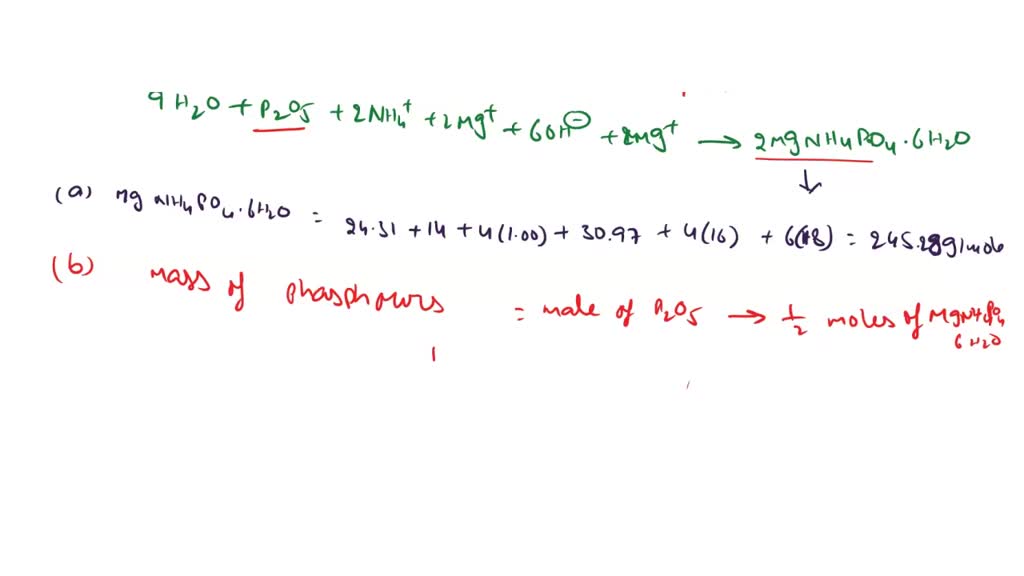 9 H₂O + P₂O₅ + 2NH₄⁺ + 2Mg⁺ + 6OH⁻ + 2Mg⁺ → 2MgNH₄PO₄·6H₂O
(a) Mg NH₄PO₄·6H₂O = 24.31 + 14 + 4(1.00) + 30.97 + 4(16) + 6(18) = 245.28g/mole
(b) mass of phosphours = mole of P₂O₅ → 1/2 moles of MgNH₄PO₄
6 H₂O